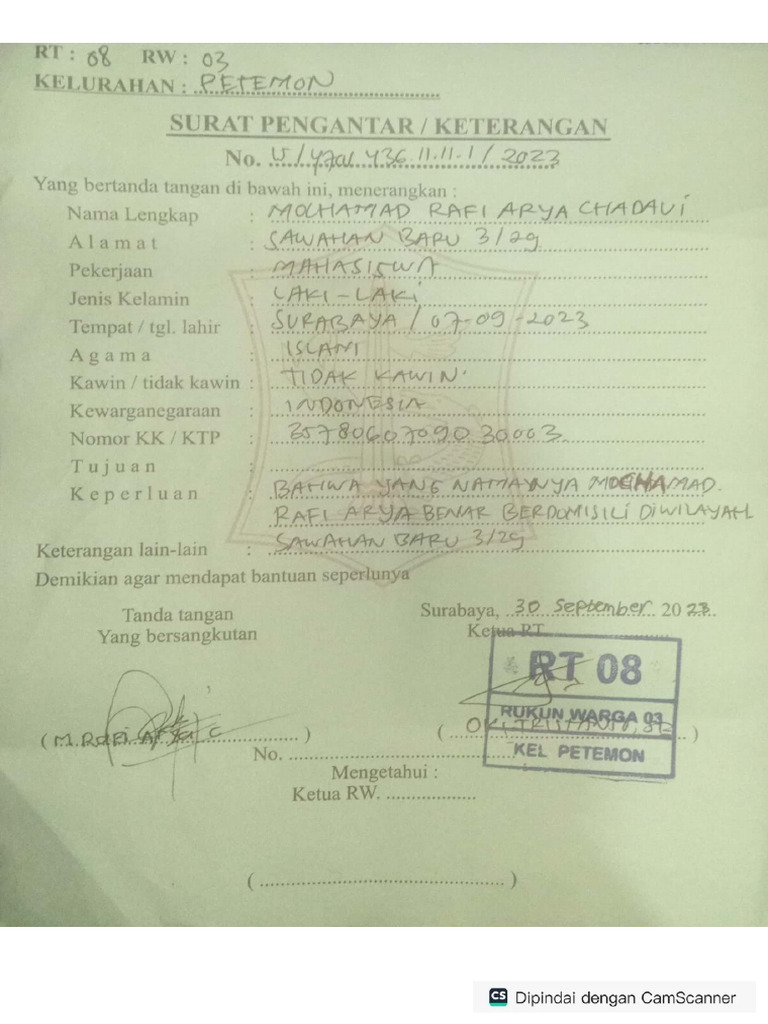 RT : 08 RW : 03
KELURAHAN : PETEMON
SURAT PENGANTAR / KETERANGAN
No. 436.11.11.1/2023
Yang bertanda tangan di bawah ini, menerangkan :
Nama Lengkap : MOCHAMAD RAFI ARYA CHADAVI
Alamat : SAWAHAN BARU 3/29
Pekerjaan : MAHASISWA
Jenis Kelamin : LAKI-LAKI
Tempat / tgl. lahir : SURABAYA / 07-09-2023
Agama : ISLAM
Kawin / tidak kawin : TIDAK KAWIN
Kewarganegaraan : INDONESIA
Nomor KK / KTP : 3578060709030003
Tujuan :
Keperluan : BAHWA YANG NAMANYA MOCHAMAD
RAFI ARYA BENAR BERDOMISILI DIWILAYAH
Keterangan lain-lain : SAWAHAN BARU 3/29
Demikian agar mendapat bantuan seperlunya
Tanda tangan
Yang bersangkutan
Surabaya, 30 September 2023
Ketua RT
RT 08
RUKUN WARGA 03
KEL PETEMON
(M. Rafi Arya C)
No.
Mengetahui :
Ketua RW.
CS Dipindai dengan CamScanner